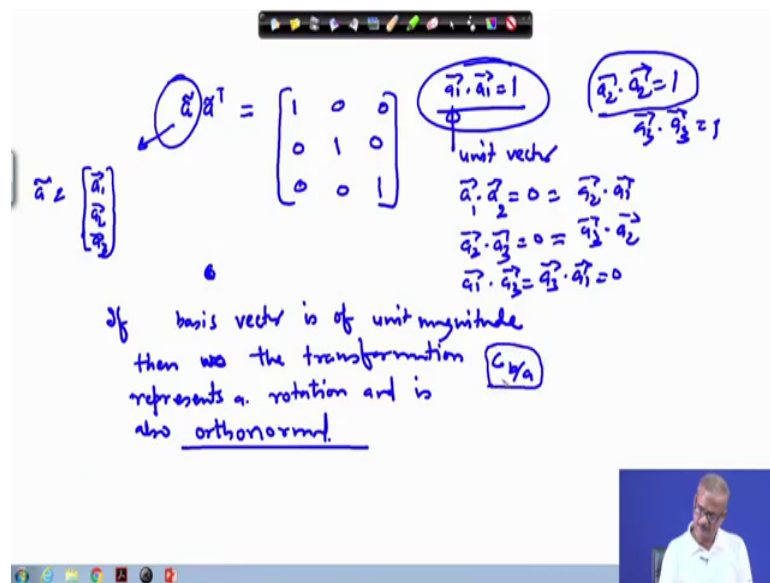 ã ã^T = [1 0 0
0 1 0
0 0 1]
a⃗1 · a⃗1 = 1
a⃗2 · a⃗2 = 1
a⃗3 · a⃗3 = 1
unit vector
ã = [a⃗1
a⃗2
a⃗3]
a⃗1 · a⃗2 = 0 = a⃗2 · a⃗1
a⃗2 · a⃗3 = 0 = a⃗3 · a⃗2
a⃗1 · a⃗3 = a⃗3 · a⃗1 = 0
If basis vector is of unit magnitude
then the transformation C b/a
represents a rotation and is
also orthonormal.